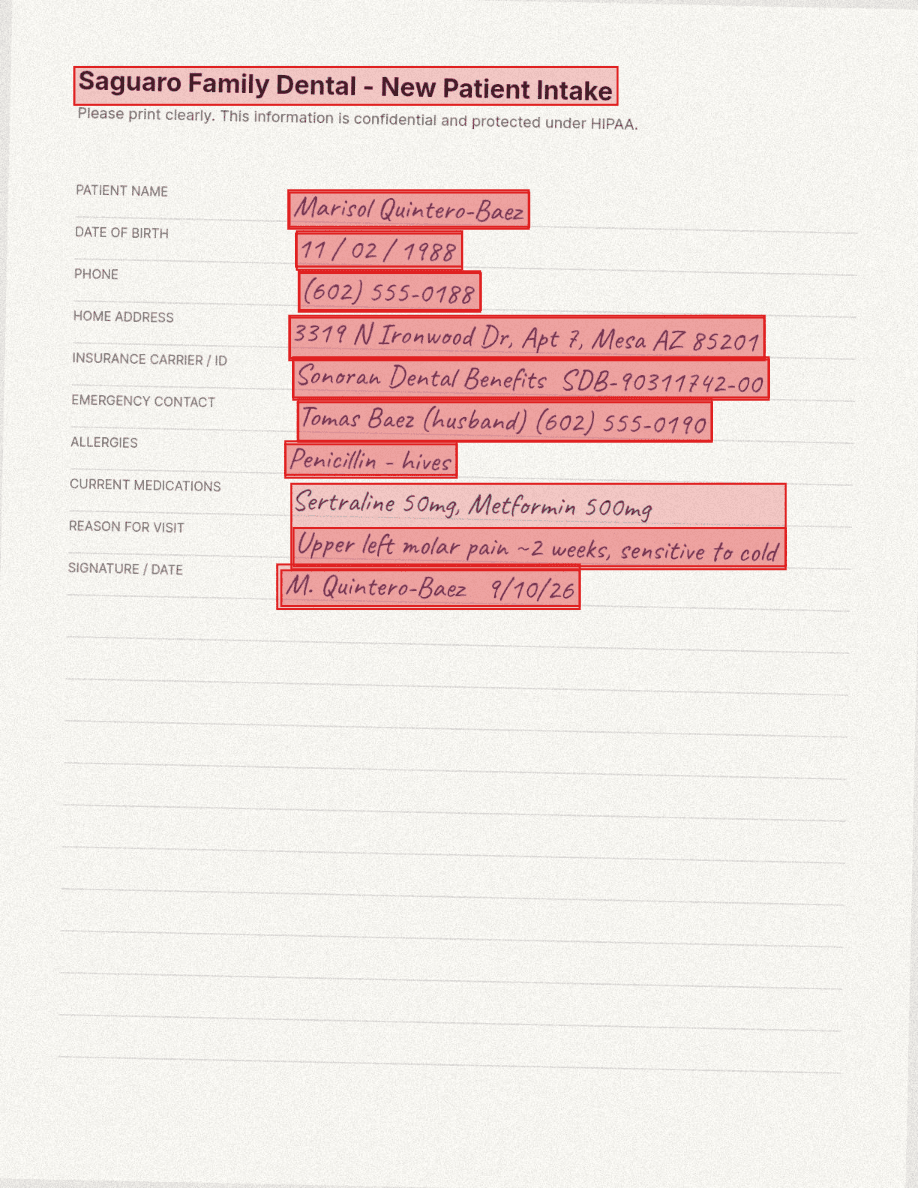 Saguaro Family Dental - New Patient Intake
Please print clearly. This information is confidential and protected under HIPAA.
PATIENT NAME Marisol Quintero-Baez
DATE OF BIRTH 11 / 02 / 1988
PHONE (602) 555-0188
HOME ADDRESS 3319 N Ironwood Dr, Apt 7, Mesa AZ 85201
INSURANCE CARRIER / ID Sonoran Dental Benefits SDB-90311742-00
EMERGENCY CONTACT Tomas Baez (husband) (602) 555-0190
ALLERGIES Penicillin - hives
CURRENT MEDICATIONS Sertraline 50mg, Metformin 500mg
REASON FOR VISIT Upper left molar pain ~2 weeks, sensitive to cold
SIGNATURE / DATE M. Quintero-Baez 9/10/26